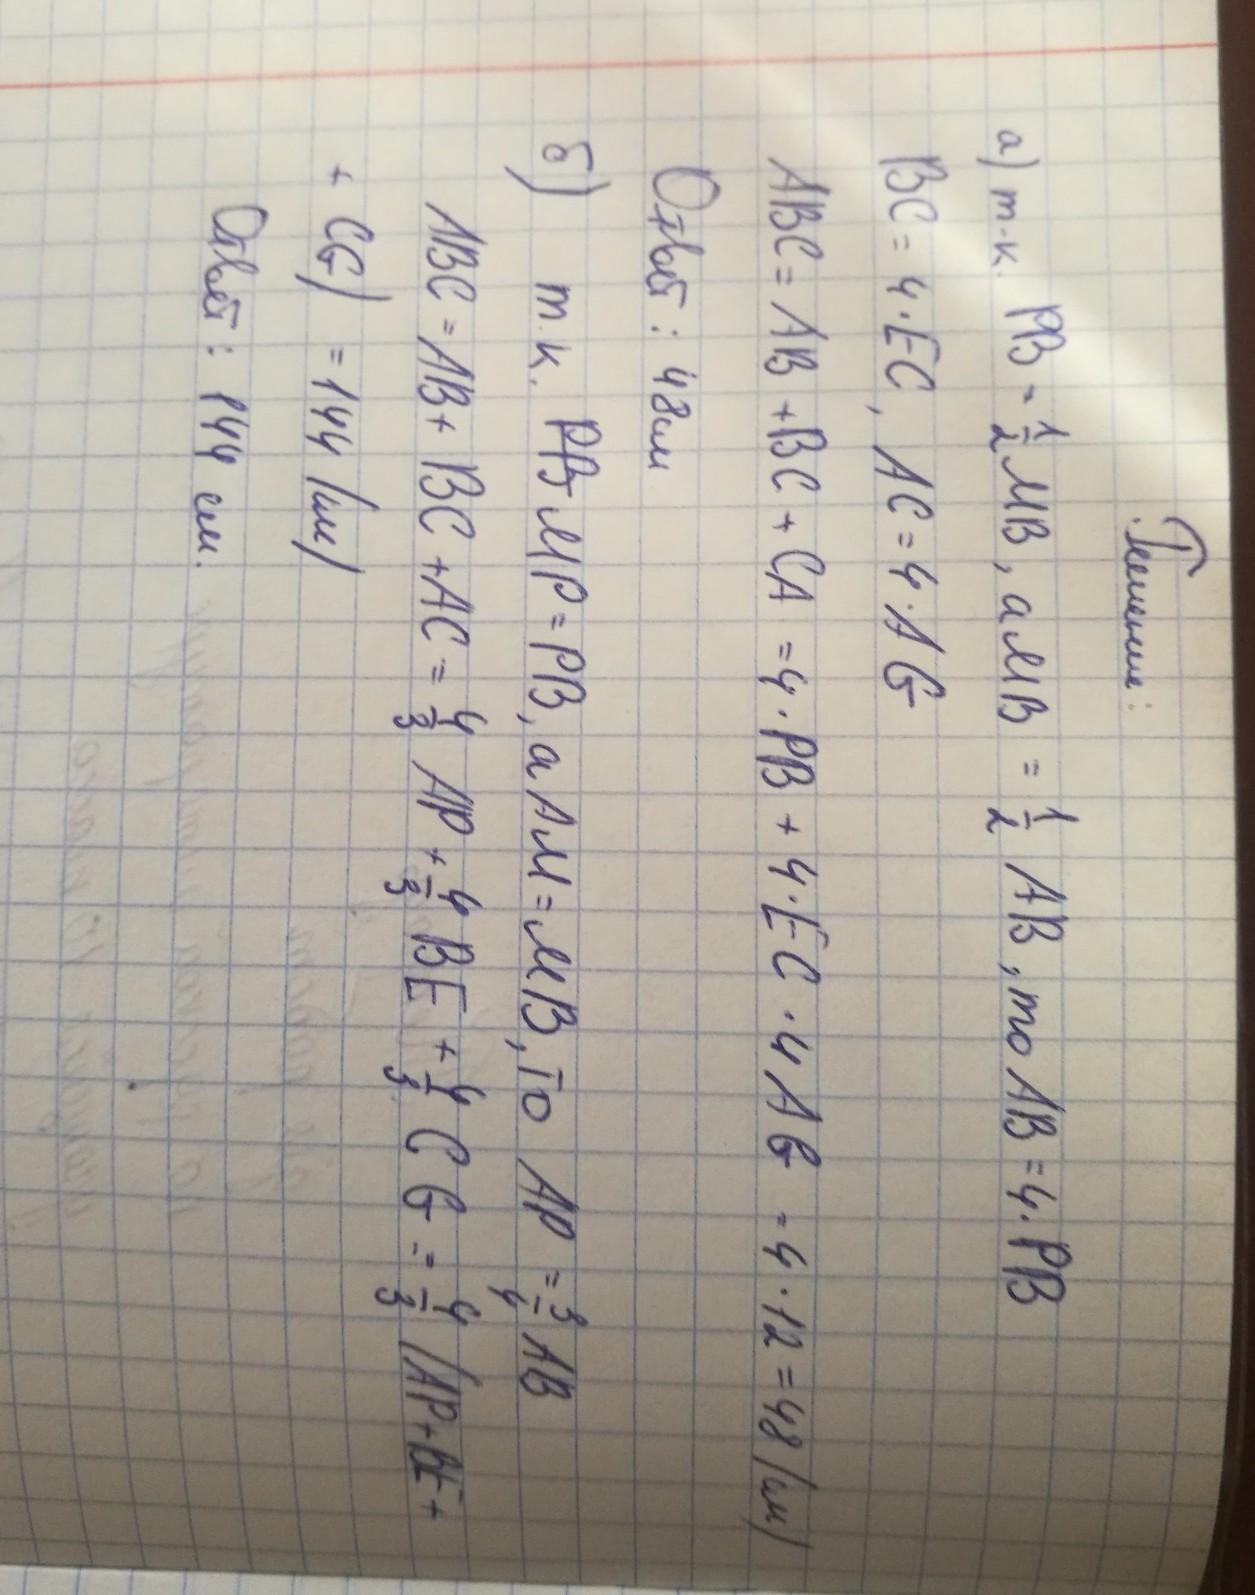 Решение:
а) т.к. PB = 1/2 MB, а MB = 1/2 AB, то AB = 4·PB
BC = 4·EC, AC = 4·AG
ABC = AB + BC + CA = 4·PB + 4·EC · 4AG = 4·12 = 48 (см)
Ответ: 48см
б) т.к. PB MP = PB, а AM = MB, то AP = 3/4 AB
ABC = AB + BC + AC = 4/3 AP + 4/3 BE + 4/3 CG = 4/3 (AP + BE +
+ CG) = 144 (см)
Ответ: 144 см.